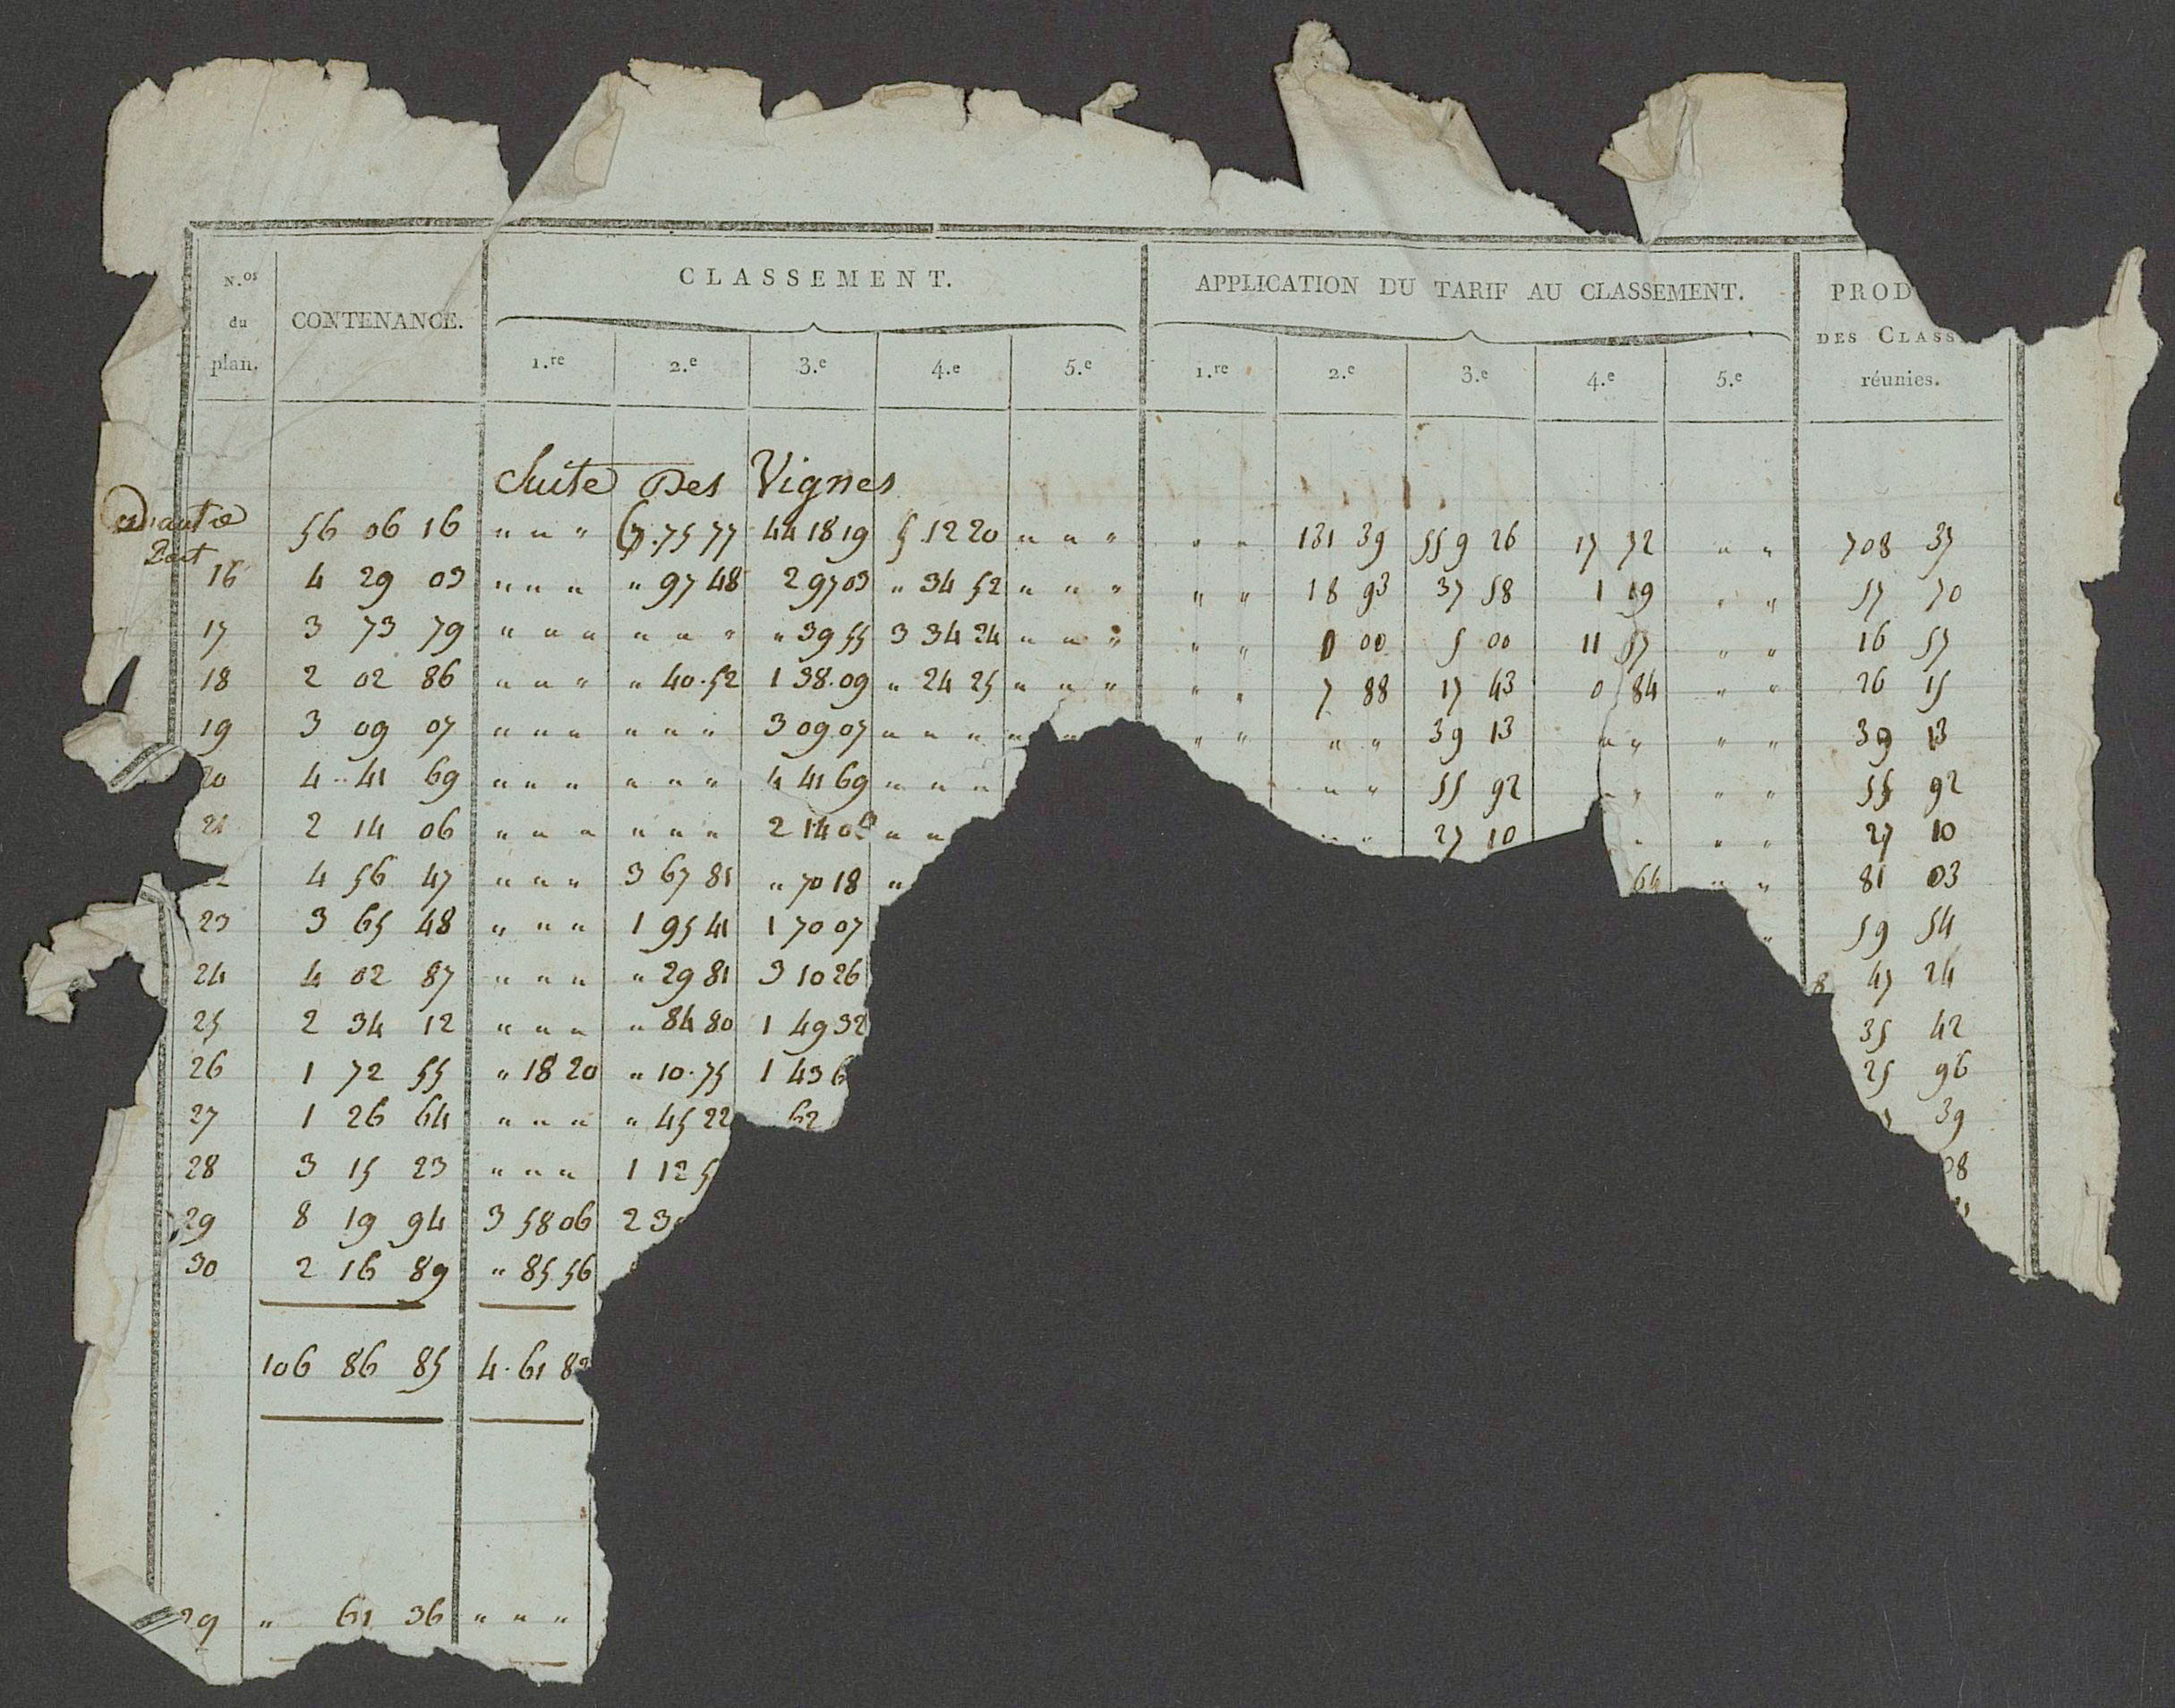 N.os du plan.
CONTENANCE.
CLASSEMENT.
1.re 2.e 3.e 4.e 5.e
APPLICATION DU TARIF AU CLASSEMENT.
1.re 2.e 3.e 4.e 5.e
PROD
DES CLASS
réunies.
Suite Des Vignes
D'autre Part 56 06 16 " " " 6.75 77 44 18 19 5 12 20 " " " " " 131 39 559 26 17 72 " " 708 37
16 4 29 03 " " " " 97 48 2 97 03 " 34 52 " " " " " 18 93 37 58 1 19 " " 57 70
17 3 73 79 " " " " " " " 39 55 3 34 24 " " " " " 0 00 5 00 11 57 " " 16 57
18 2 02 86 " " " " 40.52 1 38.09 " 24 25 " " " " " 7 88 17 43 0 84 " " 26 15
19 3 09 07 " " " " " " 3 09 07 " " " " " " " " " 39 13 " " " " 39 13
20 4 41 69 " " " " " " 4 41 69 " " " " " 55 92 " " " " 55 92
21 2 14 06 " " " " " " 2 14 06 " " " " 27 10 " " " 27 10
4 56 47 " " " 3 67 81 " 70 18 " 66 " " 81 03
23 3 65 48 " " " 1 95 41 1 70 07 " 59 54
24 4 02 87 " " " " 29 81 3 10 26 47 24
25 2 34 12 " " " " 84 80 1 49 32 35 42
26 1 72 55 " 18 20 " 10.75 1 43 6 25 96
27 1 26 64 " " " " 45 22 62 39
28 3 15 23 " " " 1 12 5 08
29 8 19 94 3 58 06 2 3
30 2 16 89 " 85 56
106 86 85 4.61 82
29 " 61 36 " " "